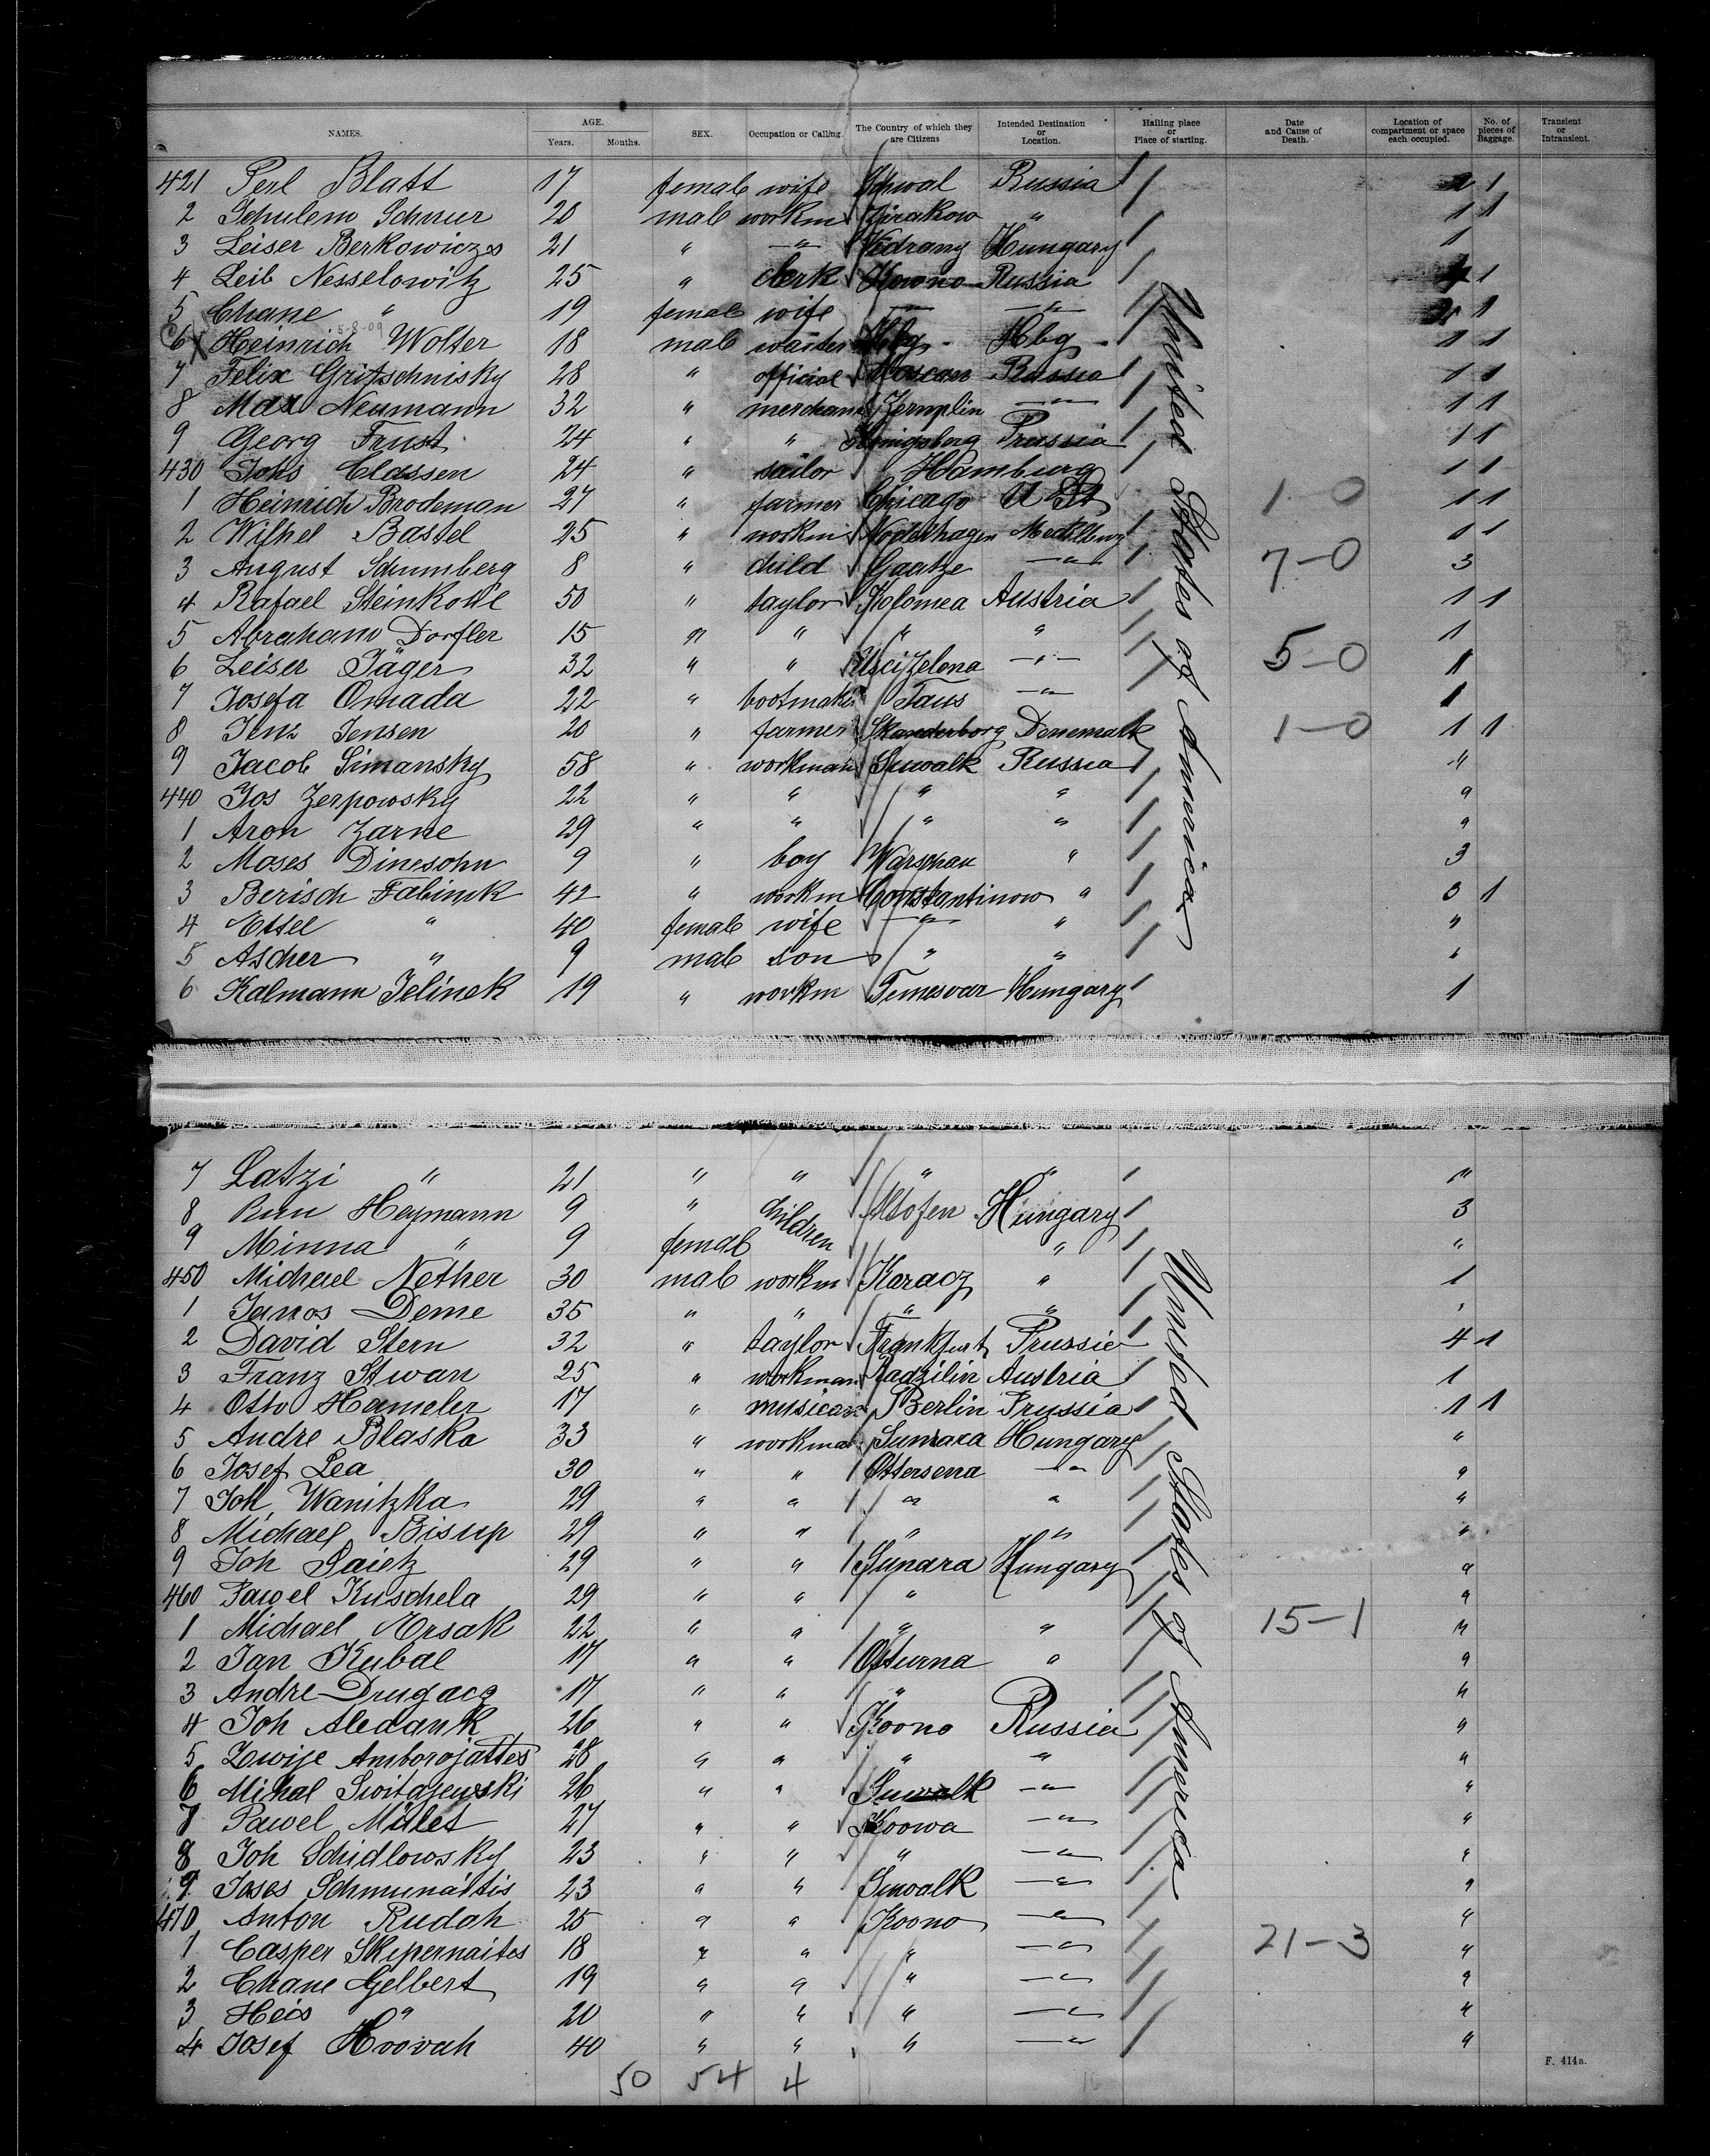 NAMES. AGE. Years. Months. SEX. Occupation or Calling. The Country of which they are Citizens Intended Destination or Location. Hailing place or Place of starting. Date and Cause of Death. Location of compartment or space each occupied. No. of pieces of Baggage. Transient or Intransient.
421 Perl Blatt 17 female wife Russia 1
2 Schulem Schnur 20 male workm Zirakow " 1 1
3 Leiser Berkowicz 21 " —"— Hungary 1
4 Leib Nesselowitz 25 " clerk Kowno Russia 1
5 Chane " 19 female wife —"— —"— 1
6 Heinrich Wolter 18 male waiter Hbg. Hbg. 1 1
7 Felix Gritschnisky 28 " official Moscau Russia 1 1
8 Max Neumann 32 " merchant Zemplin —"— 1 1
9 Georg Frust 24 " " Königsberg Prussia 1 1
430 Johs Classen 24 " sailor Hamburg 1 1
1 Heinrich Brodeman 27 " farmer Chicago U St 1-0 1 1
2 Wilhel Bastel 25 " workm 1 1
3 August Schumberg 8 " child Gaatze —"— 7-0 3
4 Rafael Steinkohl 50 " taylor Kolomea Austria 1 1
5 Abraham Dorfler 15 " " " " 1
6 Leiser Jäger 32 " " Uscizelona —"— 5-0 1
7 Josefa Omada 22 " bootmaker Taus —"— 1
8 Jens Jensen 20 " farmer Skanderborg Denemark 1-0 1 1
9 Jacob Simansky 58 " workman Suwalk Russia "
440 Jos Zerpowsky 22 " " " " "
1 Aron Zarne 29 " " " " "
2 Moses Dinesohn 9 " boy Warschau " 3
3 Berisch Fabinek 42 " workm Constantinow " 3 1
4 Ettel " 40 female wife —"— " "
5 Ascher " 9 male son " " "
6 Kalmann Jelinek 19 " workm Temesvar Hungary 1
United States of America
7 Latzi " 21 " " " " "
8 Heymann 9 " children Altofen Hungary 3
9 Minna " 9 female " "
450 Michael Nether 30 male workm Karacz " 1
1 Janos Deme 35 " " " "
2 David Stern 32 " taylor Frankfurt Prussia 4 1
3 Franz Stwan 25 " workman Radzilin Austria 1
4 Otto Hameler 17 " musican Berlin Prussia 1 1
5 Andre Blaska 33 " workman Hungary "
6 Josef Lea 30 " " —"— "
7 Joh Wanitzka 29 " " " " "
8 Michael Bisup 29 " " " " "
9 Joh Saietz 29 " " Hungary "
460 Pawel Kuschela 29 " " " "
1 Michael Orsak 22 " " " " 15-1 "
2 Jan Kubal 17 " " Osturna " "
3 Andre Drugacz 17 " " " "
4 Joh Aledank 26 " " Koono Russia "
5 Zowije Amborojattes 28 " " " " "
6 Mihal Switajewski 26 " " Suwalk —"— "
7 Pawel Milles 27 " " Koowa —"— "
8 Joh Schidlowsky 23 " " " —"— "
9 Joses Schmunaitis 23 " " Suwalk —"— "
470 Anton Rudah 25 " " Koono —"— "
1 Casper Skipernaites 18 " " " —"— 21-3 "
2 Chane Gelbert 19 " " " —"— "
3 " 20 " " " —"— "
4 Josef Hrovah 40 " " " —"— "
United States of America
50 54 4
F. 414a.